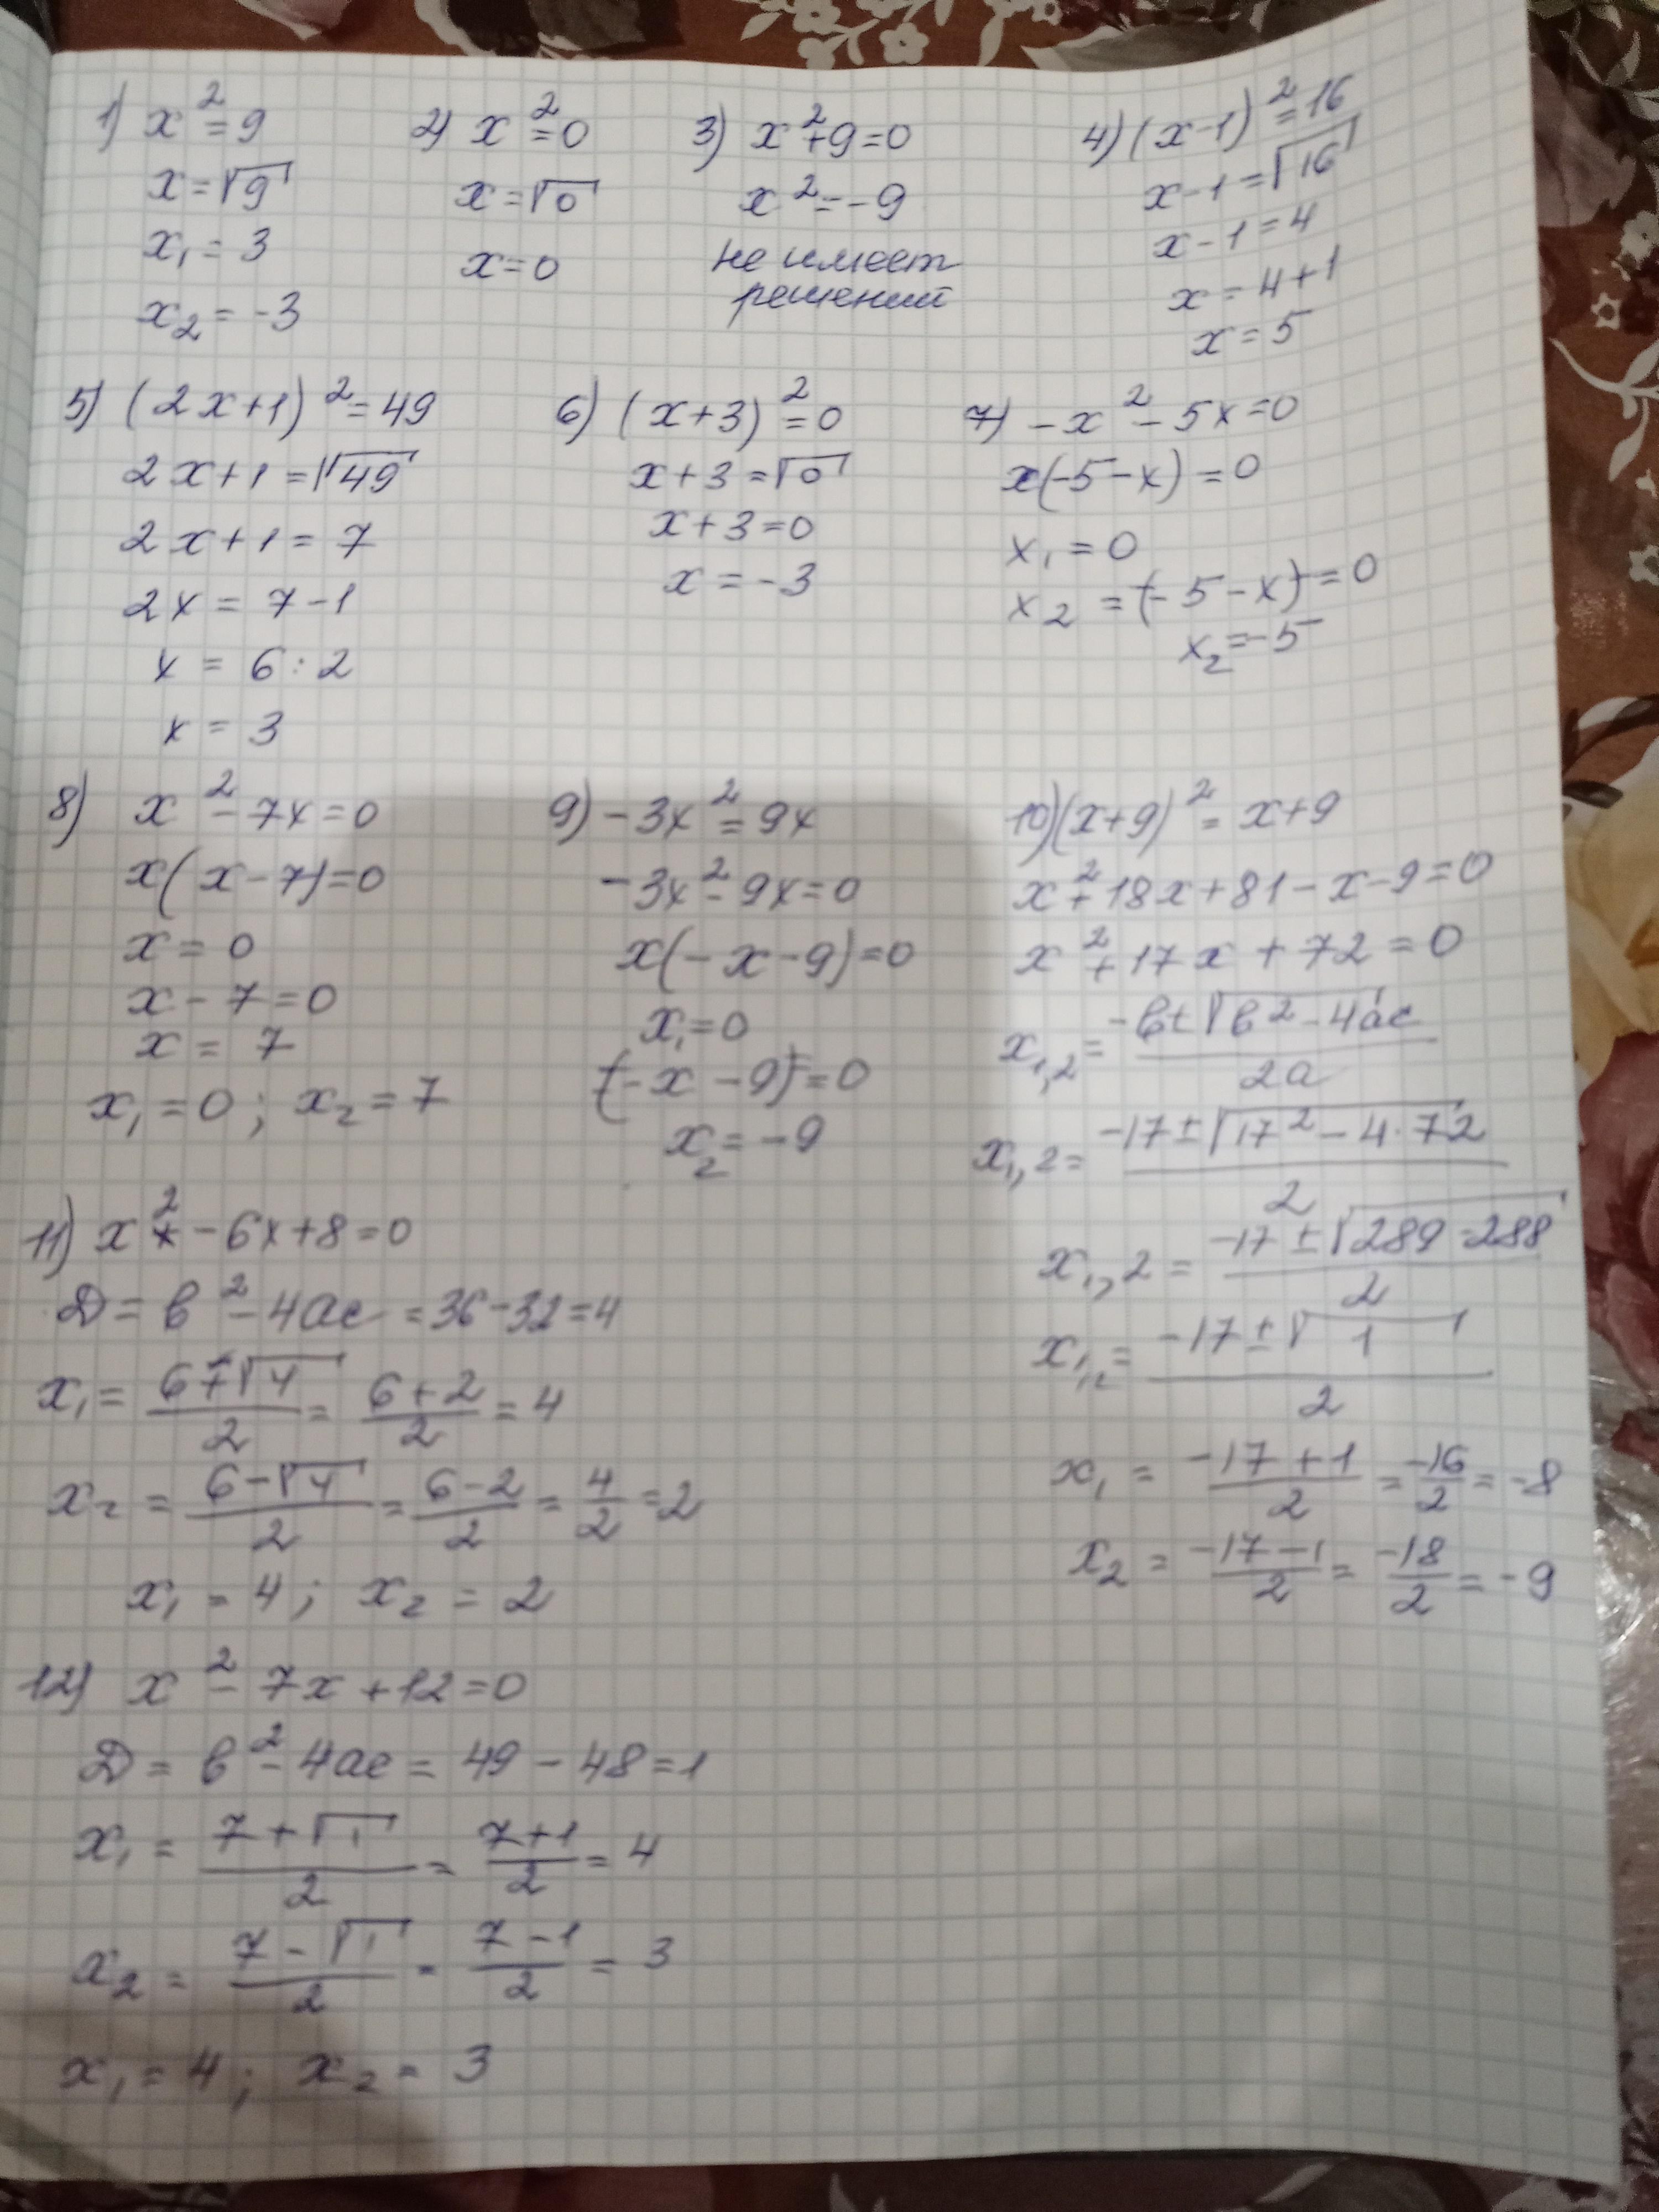 1) x² = 9
x = √9
x₁ = 3
x₂ = -3
2) x² = 0
x = √0
x = 0
3) x² + 9 = 0
x² = -9
не имеет
решений
4) (x-1)² = 16
x - 1 = √16
x - 1 = 4
x = 4 + 1
x = 5
5) (2x+1)² = 49
2x + 1 = √49
2x + 1 = 7
2x = 7 - 1
x = 6 : 2
x = 3
6) (x+3)² = 0
x + 3 = √0
x + 3 = 0
x = -3
7) -x² - 5x = 0
x(-5-x) = 0
x₁ = 0
x₂ = (-5-x) = 0
x₂ = -5
8) x² - 7x = 0
x(x-7) = 0
x = 0
x - 7 = 0
x = 7
x₁ = 0; x₂ = 7
9) -3x² = 9x
-3x² - 9x = 0
x(-x-9) = 0
x₁ = 0
(-x-9) = 0
x₂ = -9
10) (x+9)² = x+9
x² + 18x + 81 - x - 9 = 0
x² + 17x + 72 = 0
x₁,₂ = (-b ± √(b² - 4ac)) / 2a
x₁,₂ = (-17 ± √(17² - 4·72)) / 2
x₁,₂ = (-17 ± √(289 - 288)) / 2
x₁,₂ = (-17 ± √1) / 2
x₁ = (-17+1)/2 = -16/2 = -8
x₂ = (-17-1)/2 = -18/2 = -9
11) x² - 6x + 8 = 0
D = b² - 4ac = 36 - 32 = 4
x₁ = (6+√4)/2 = (6+2)/2 = 4
x₂ = (6-√4)/2 = (6-2)/2 = 4/2 = 2
x₁ = 4; x₂ = 2
12) x² - 7x + 12 = 0
D = b² - 4ac = 49 - 48 = 1
x₁ = (7+√1)/2 = (7+1)/2 = 4
x₂ = (7-√1)/2 = (7-1)/2 = 3
x₁ = 4; x₂ = 3